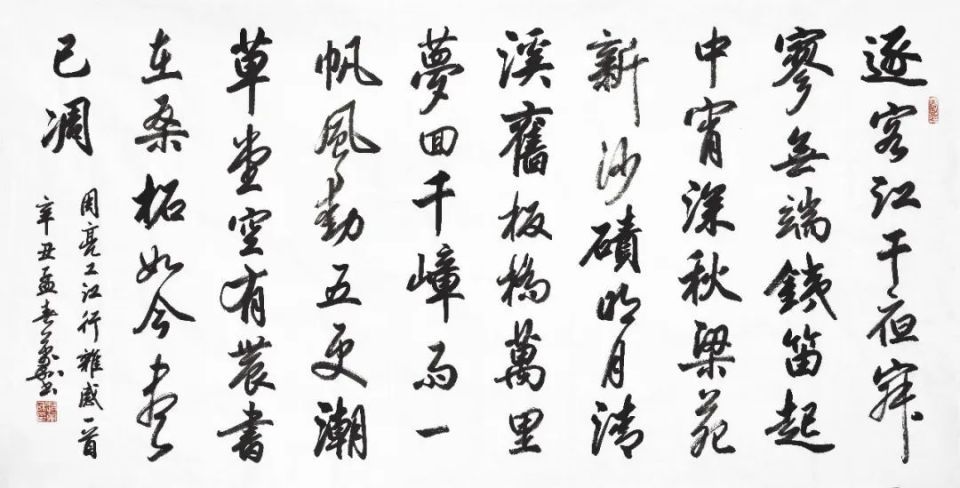 逐客江干夜寂
寥無端鐵笛起
中宵深秋梁苑
新沙磧明月清
溪舊板橋萬里
夢回千嶂雨一
帆風動五更潮
草堂空有農書
在桑柘如今
已凋
周亮工江行雜感一首
辛丑孟春書